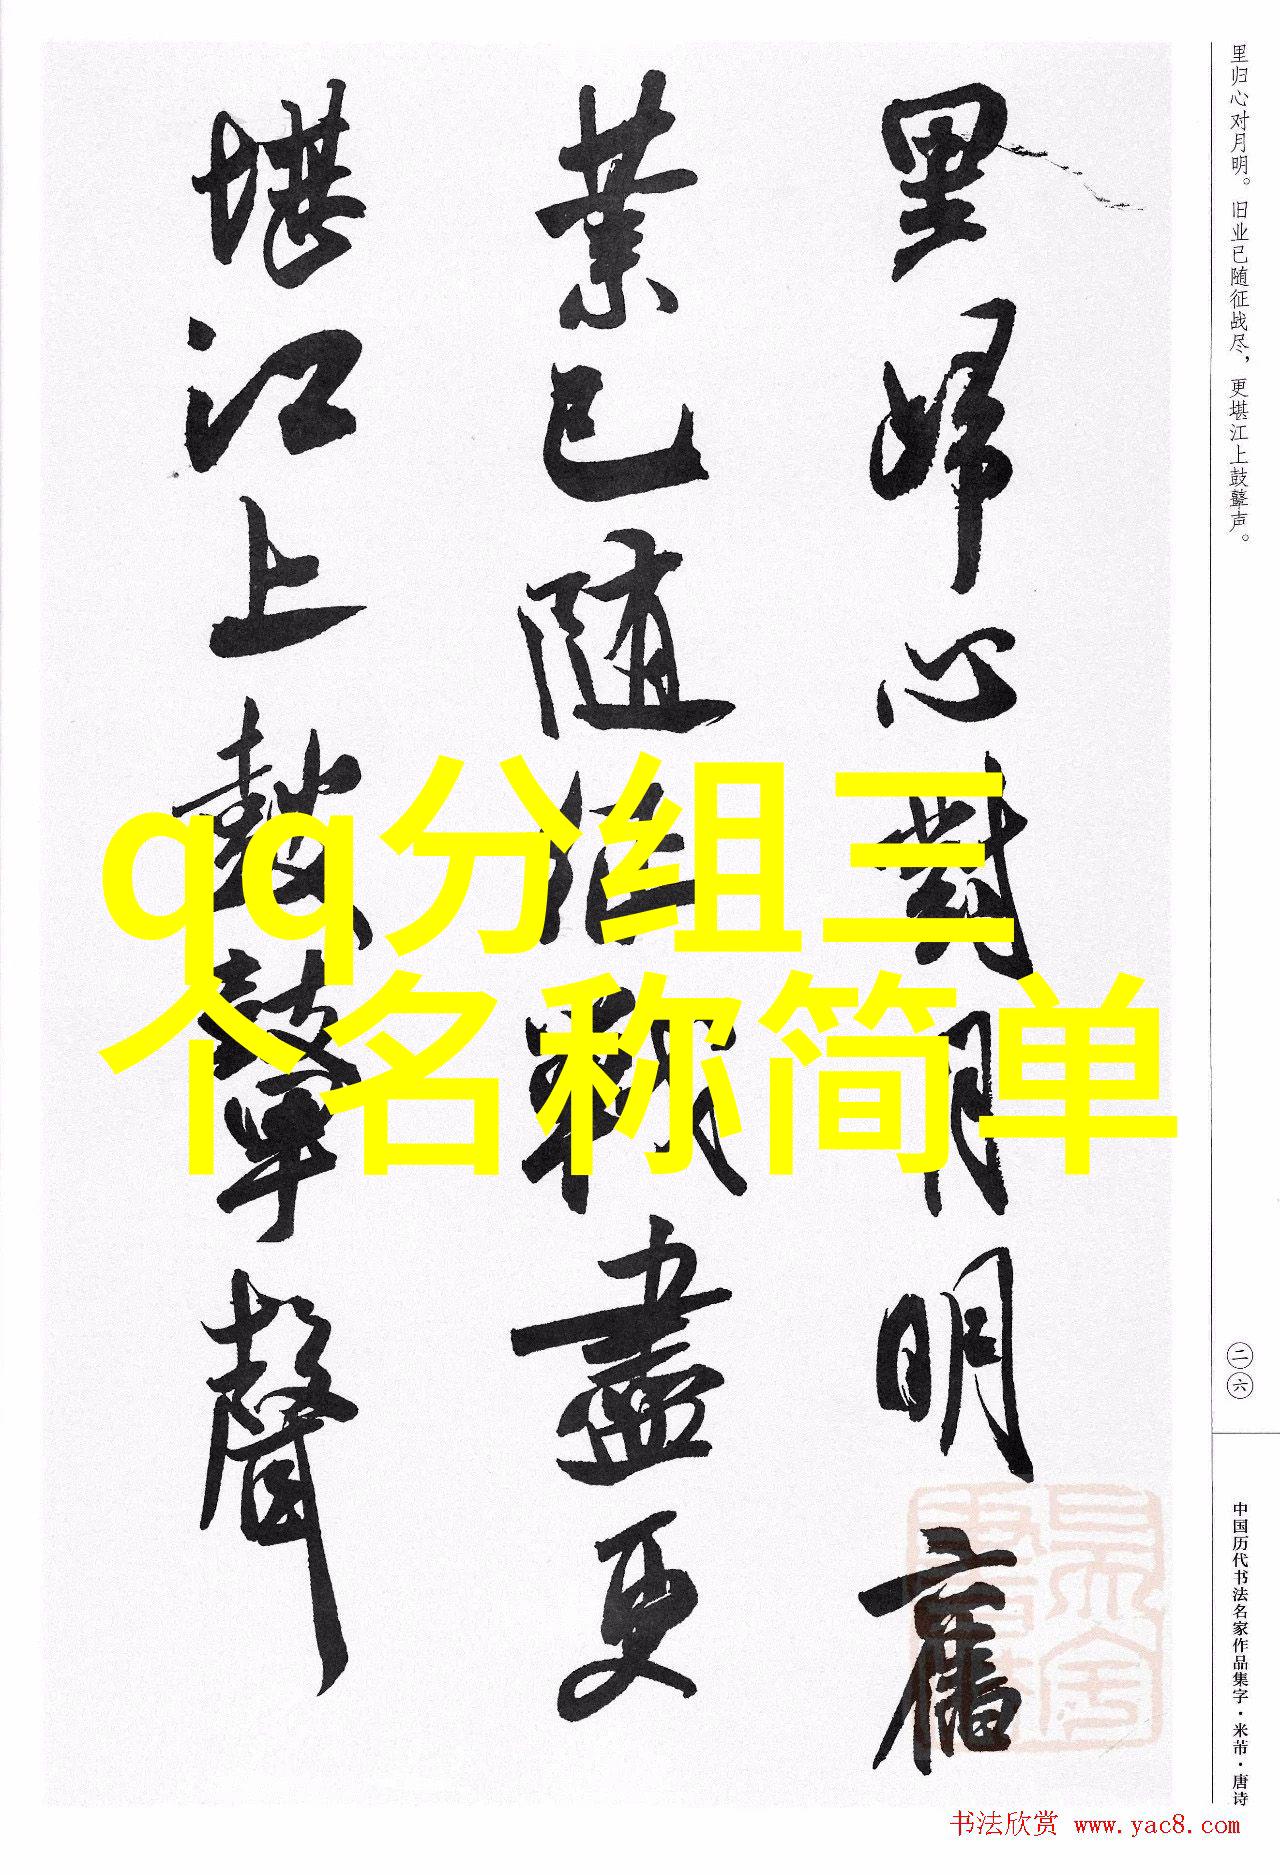 里归心对月明。旧业已随征战尽，更堪江上鼓鼙声。
里歸心對月明舊
業已隨征戰盡更
堪江上鼓鼙聲
qq分组三
个名称简单
二六
中国历代书法名家作品集字·米芾·唐诗
书法欣赏 www.yac8.com